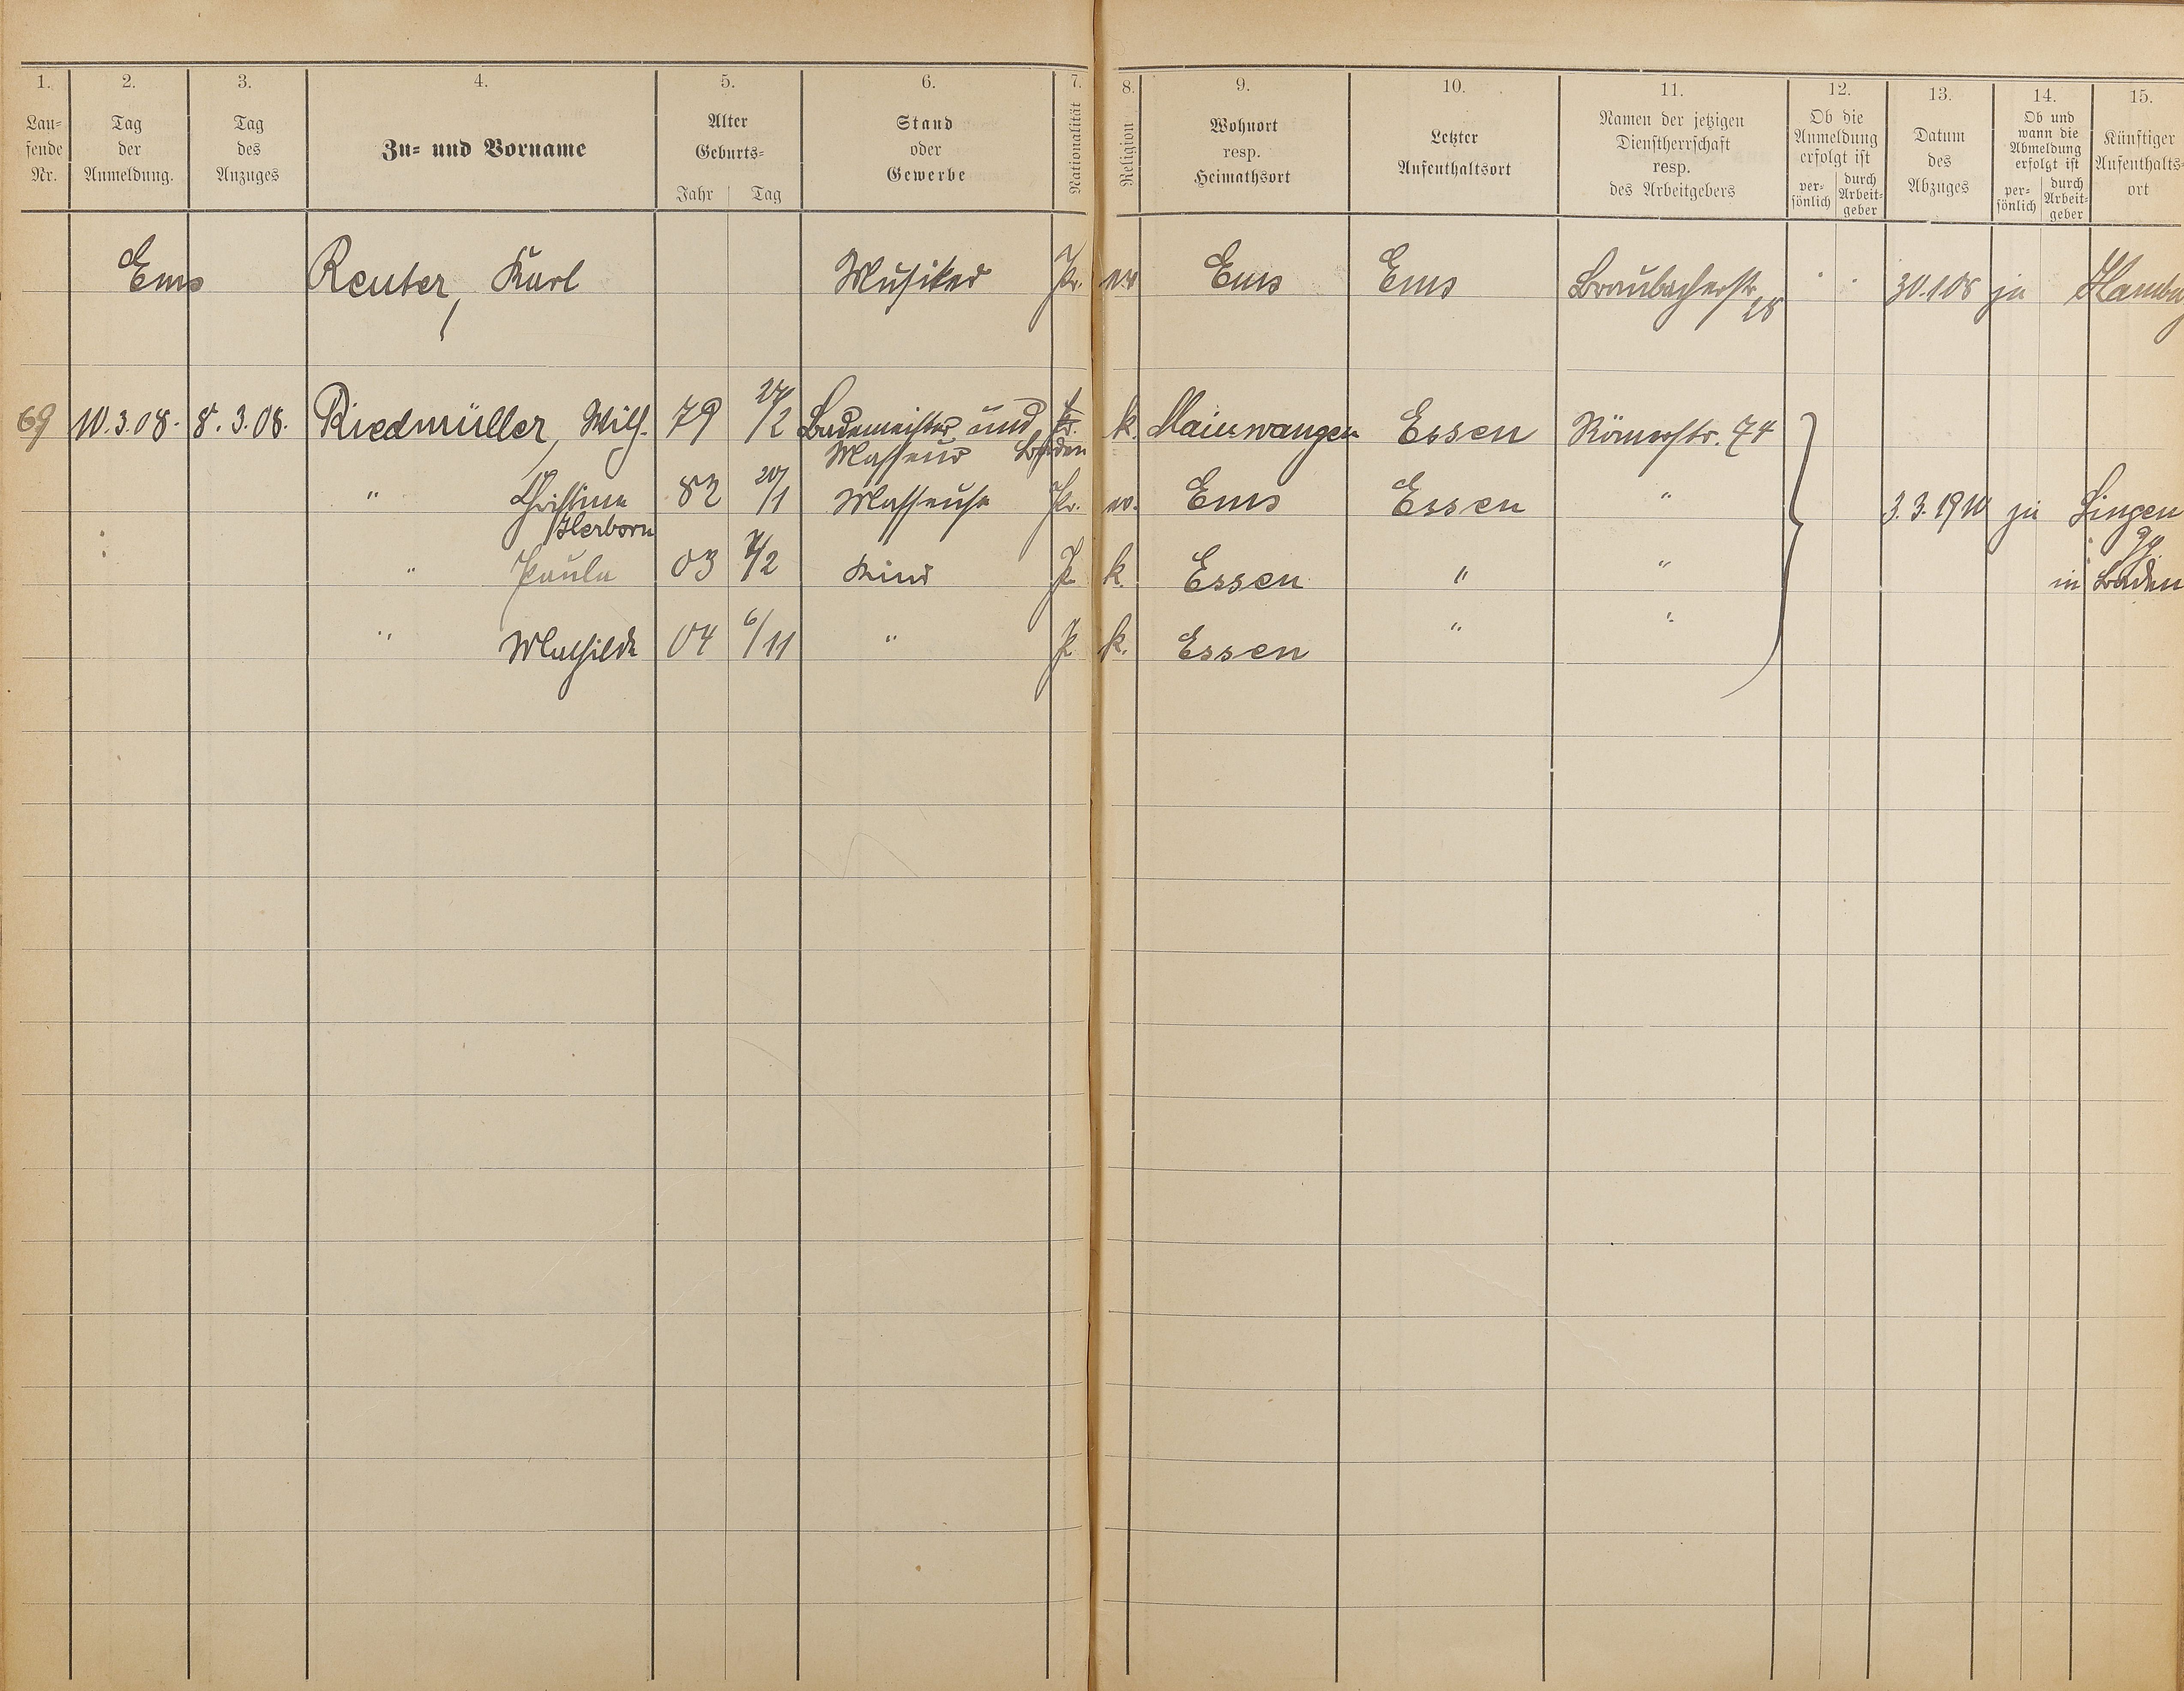 1. 2. 3. 4. 5. 6. 7. 8. 9. 10. 11. 12. 13. 14. 15.
Lau-
fende
Nr.
Tag
der
Anmeldung.
Tag
des
Anzuges
Zu- und Vorname
Alter
Geburts-
Jahr Tag
Stand
oder
Gewerbe
Nationalität
Religion
Wohnort
resp.
Heimathsort
Letzter
Aufenthaltsort
Namen der jetzigen
Dienstherrschaft
resp.
des Arbeitgebers
Ob die
Anmeldung
erfolgt ist
per-
sönlich
durch
Arbeit-
geber
Datum
des
Abzuges
Ob und
wann die
Abmeldung
erfolgt ist
per-
sönlich
durch
Arbeit-
geber
Künftiger
Aufenthalts-
ort
Ems Reuter, Karl Musiker Pr. Ems Ems Braubacherstr. 30.1 08 ja
69 10.3.08. 8.3.08. Riedmüller, Wilh. 79 27/2 Bademeister und k. Mainwangen Essen Römerstr. 74
Masseur Baden
" Christine 82 20/1 Masseuse Pr. Ems Essen " 3.3.1910 ja Singen
Herborn
" Paula 03 /2 Kind P k. Essen " " in Baden
" Mathilde 04 6/11 " P k. Essen " "